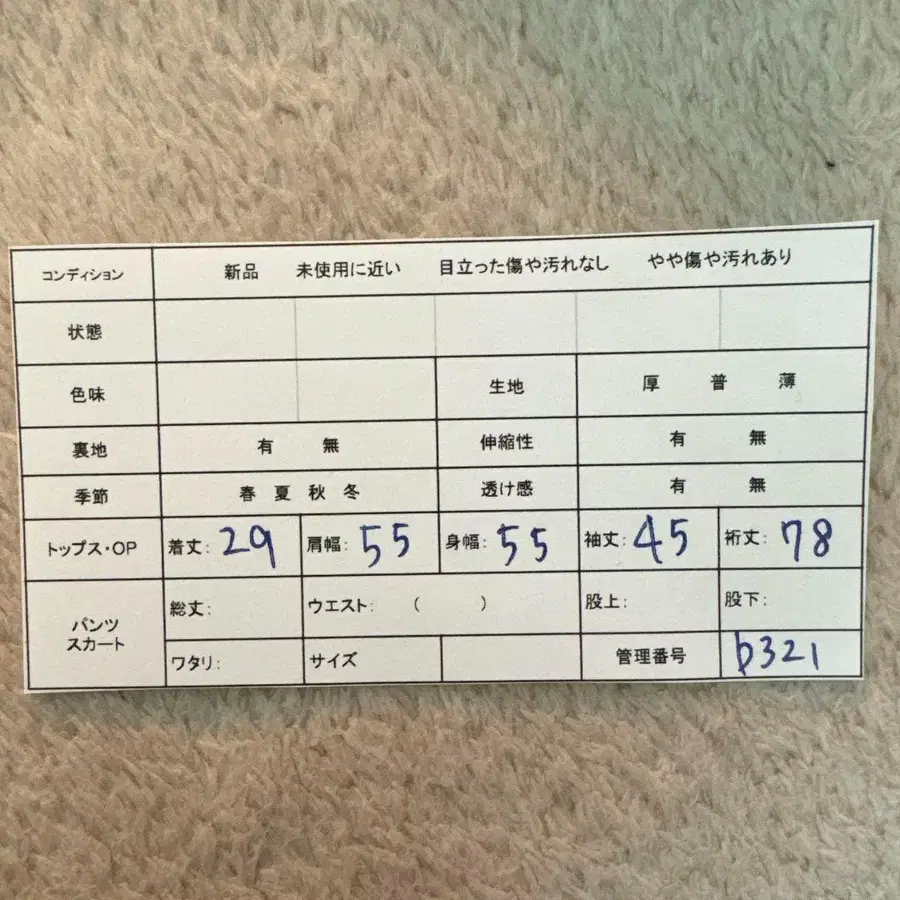 コンディション 新品 未使用に近い 目立った傷や汚れなし やや傷や汚れあり
状態
色味 生地 厚 普 薄
裏地 有 無 伸縮性 有 無
季節 春 夏 秋 冬 透け感 有 無
トップス・OP 着丈: 29 肩幅: 55 身幅: 55 袖丈: 45 裄丈: 78
パンツ
スカート
総丈: ウエスト: ( ) 股上: 股下:
ワタリ: サイズ 管理番号 b321